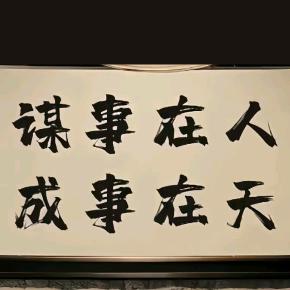 谋事在人
成事在天